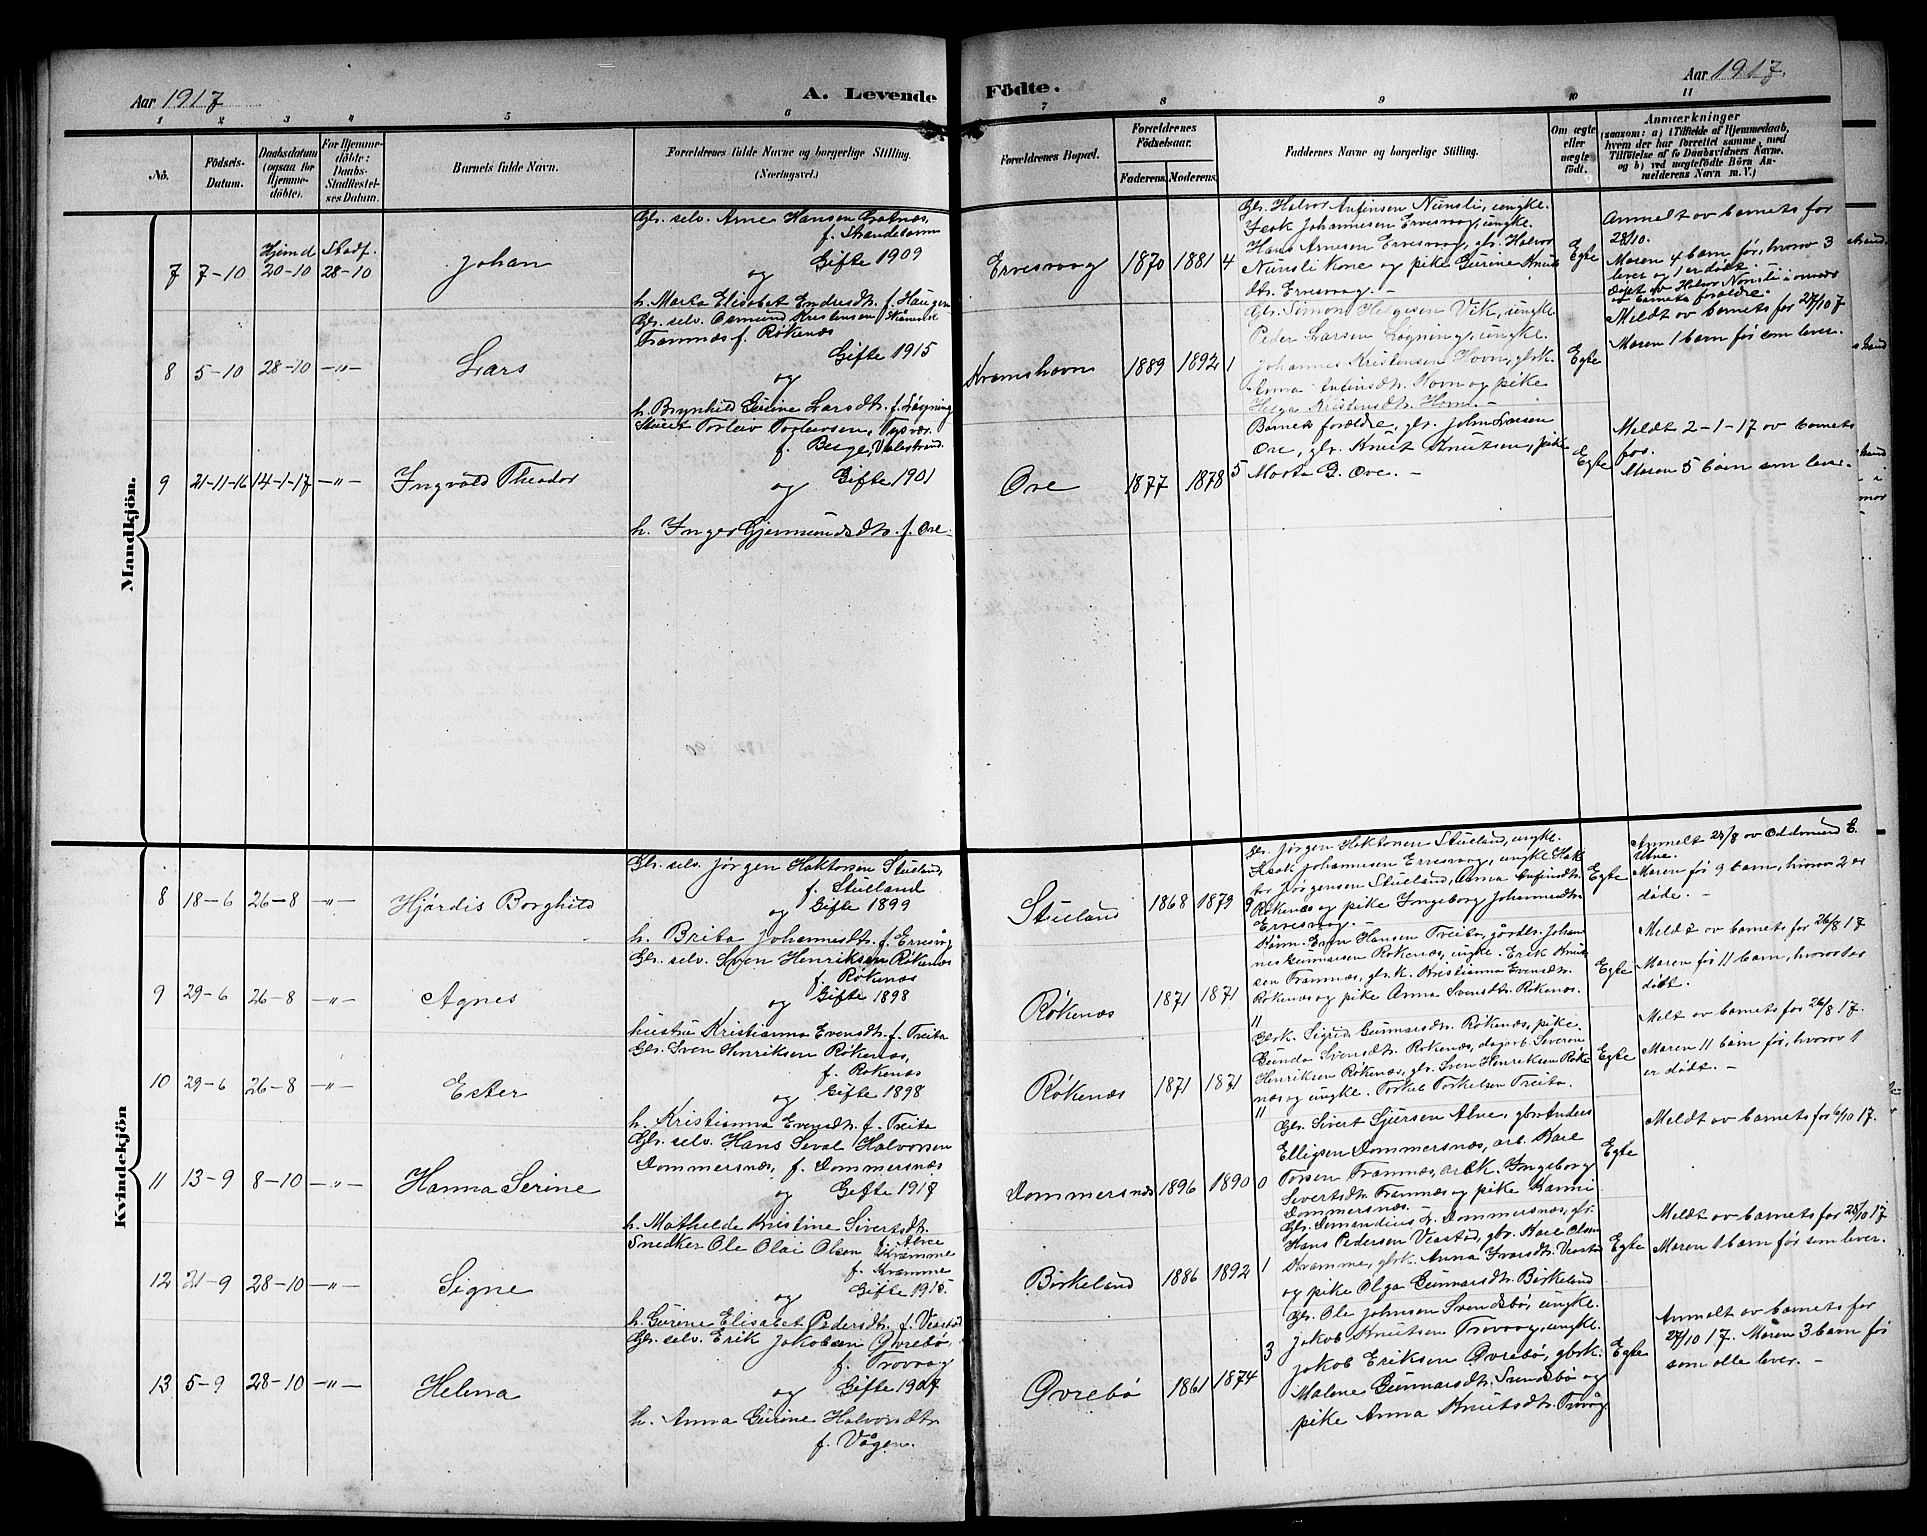 Aar 1917
A. Levende Födte.
Aar 1917.
1 2 3 4 5 6 7 8 9 10 11
No.
Födsels-
Datum.
Daabsdatum
(ogsaa for
Hjemme-
döbte).
For Hjemme-
döbte:
Daabs-
Stadfæstel-
ses Datum.
Barnets fulde Navn.
Forældrenes fulde Navne og borgerlige Stilling.
(Næringsvei.)
Forældrenes Bopæl.
Forældrenes
Födselsaar.
Faderens. Moderens.
Faddernes Navne og borgerlige Stilling.
Om ægte
eller
uægte
födt.
Anmærkninger
(saasom: a) i Tilfælde af Hjemmedaab,
hvem der har forrettet samme, med
Tilföielse af to Daabsvidners Navne,
og b) ved uægtefödte Börn An-
melderens Navn m. V.)
Mandkjön.
7 7-10 Hjemd 20-10 Stadf. 28-10 Johan
Gbr. selv. Arne Hansen
f. Strandesavn
Gifte 1909
og
h. Marta Elisabet Endresdtr. f. Haugen
Ervesvaag 1870 1881 4
Gbr. Halvor Anfinsen Nunsli, ungke.
Isak Johannesen Ervesvog, ungke.
Hans Arnesen Ervesvog, gbr. Halvor
Nunsli kone og pike Gurine Knuts
dtr. Ervesvog. -
Egte
Anmelt av barnets far
28/10.
Moren 4 barn før, hvorav 3
lever og 1 er dødt.
Døpt av Halvor Nunsli i nærvær
av barnets forældre.
8 5-10 28-10 -"- Lars
Gbr. selv. Osmund Kristensen
Tramnæs f. Røkenæs
Gifte 1915
og
h. Brynhild Gurine Larsdtr. f. Løgning
Kramshavn 1889 1892 1
Gbr. Simon Helgesen Vik, ungke
Peder Larsen Løgning, ungke.
Johannes Kristensen Hovn, gbrk.
Anna Anfinsdtr. Hovn og pike
Helga Kristensdtr. Hovn. -
Egte
Meldt av barnets far 27/10 17
Moren 1 barn før som lever.
9 21-11-16 14-1-17 -"- Ingvald Theodor
Torlav Torlavsen, Tysvær.
f. Berge, Valestrand.
Gifte 1901
og
h. Inger Gjermundsdtr. f. Øvre
Øvre 1877 1878 5
Barnets forældre, gbr. John Larsen
Øvre, gbr. Knut Knutsen, pike
Marta G. Øvre. -
Egte
Meldt 2-1-17 av barnets
far.
Moren 5 barn som lever.
Kvindekjön
8 18-6 26-8 -"- Hjørdis Borghild
Gbr. selv. Jørgen Haktorsen Stueland,
f. Stueland
og Gifte 1899
h. Brita Johannesdtr. f. Ervesvåg
Stueland 1868 1879 9
Gbr. Jørgen Haktorsen Stueland, ungke.
Isak Johannesen Ervesvog, ungke. Hak
tor Jørgensen Stueland, Anna Anfindtr.
Røkenæs og pike Ingeborg Johannesdtr.
Ervesvog.
Egte
Anmelt 24/8 av Oddmund E.
Utne.
Moren før 9 barn, hvorav 2 er
døde. -
9 29-6 26-8 -"- Agnes
Gbr. selv. Sven Henriksen Røkenæs
f. Røkenæs
og Gifte 1898
hustru Kristianna Evensdtr. f. Treita
Røkenæs 1871 1871 11
Even Hansen Treita, gårdbr. Johan
nes Gunnarsen Røkenæs, ungke. Erik Knut
sen Tramnæs, gbr.k. Kristianna Evensdtr.
Røkenæs og pike Anna Svensdtr. Røkenæs.
Egte
Meldt av barnets far 26/8 17
Moren før 11 barn, hvorav 1 er
dødt.
10 29-6 26-8 -"- Ester
Gbr. Sven Henriksen Røkenæs,
f. Røkenæs
og Gifte 1898
h. Kristianna Evensdtr. f. Treita
Røkenæs 1871 1871 11
Gbrk. Sigrid Gunnarsdtr. Røkenæs, pike
Gunda Svensdtr. Røkenæs, dagarb. Severen
Henriksen Røkenæs, gbr. Sven Henriksen Røke
næs og ungke. Torkel Torkelsen Treita.
Egte
Melt av barnets far 26/8 17.
Moren 11 barn før, hvorav 1
er dødt. -
11 13-9 8-10 -"- Hanna Serine
Gbr. selv. Hans Seval Halvorsen
Dommersnæs, f. Dommersnæs
og Gifte 1917
h. Mathelde Kristine Sivertsdtr.
f. Alve
Dommersnæs 1896 1890 0
Gbr. Sivert Gjersen Alve, gbr. Anders
Elligsen Dommersnæs, arb. Kare
Torsen Tramnæs, arb.k. Ingeborg
Sivertsdtr. Tramnæs og pike Kanni
Dommersnæs.
Egte
Meldt av barnets far 6/10 17.
12 21-9 28-10 -"- Signe
Snedker Ole Olai Olsen Kramme
f. Kramme
Gifte 1915.
og
h. Gurine Elisabet Pedersdtr. f. Veastad
Birkeland 1886 1892 1
Gbr. Demandius L. Dommersnæs, gbr.
Hans Pedersen Veastad, gbr. Kare Olsen
Kramme, gbrk. Anna Ivarsdtr. Veastad
og pike Olga Gunnarsdtr. Birkeland
Egte
Meldt av barnets far 28/10 17
Moren 1 barn før som lever.
13 5-9 28-10 -"- Helena
Gbr. selv. Erik Jakobsen Øvrebø,
f. Trovaag
og Gifte 1907
h. Anna Gurine Halvorsdtr.
f. Vågen.
Øvrebø 1861 1874 3
Gbr. Ole Johnsen Svendsbø, ungke.
Jakob Knutsen Trovaag, ungke.
Jakob Eriksen Øvrebø, gbrk.
Malene Gunnarsdtr. Svendsbø og
pike Anna Knutsdtr. Trovåg
Egte
Anmelt av barnets far
27/10 17. Moren 3 barn før
som alle lever. -